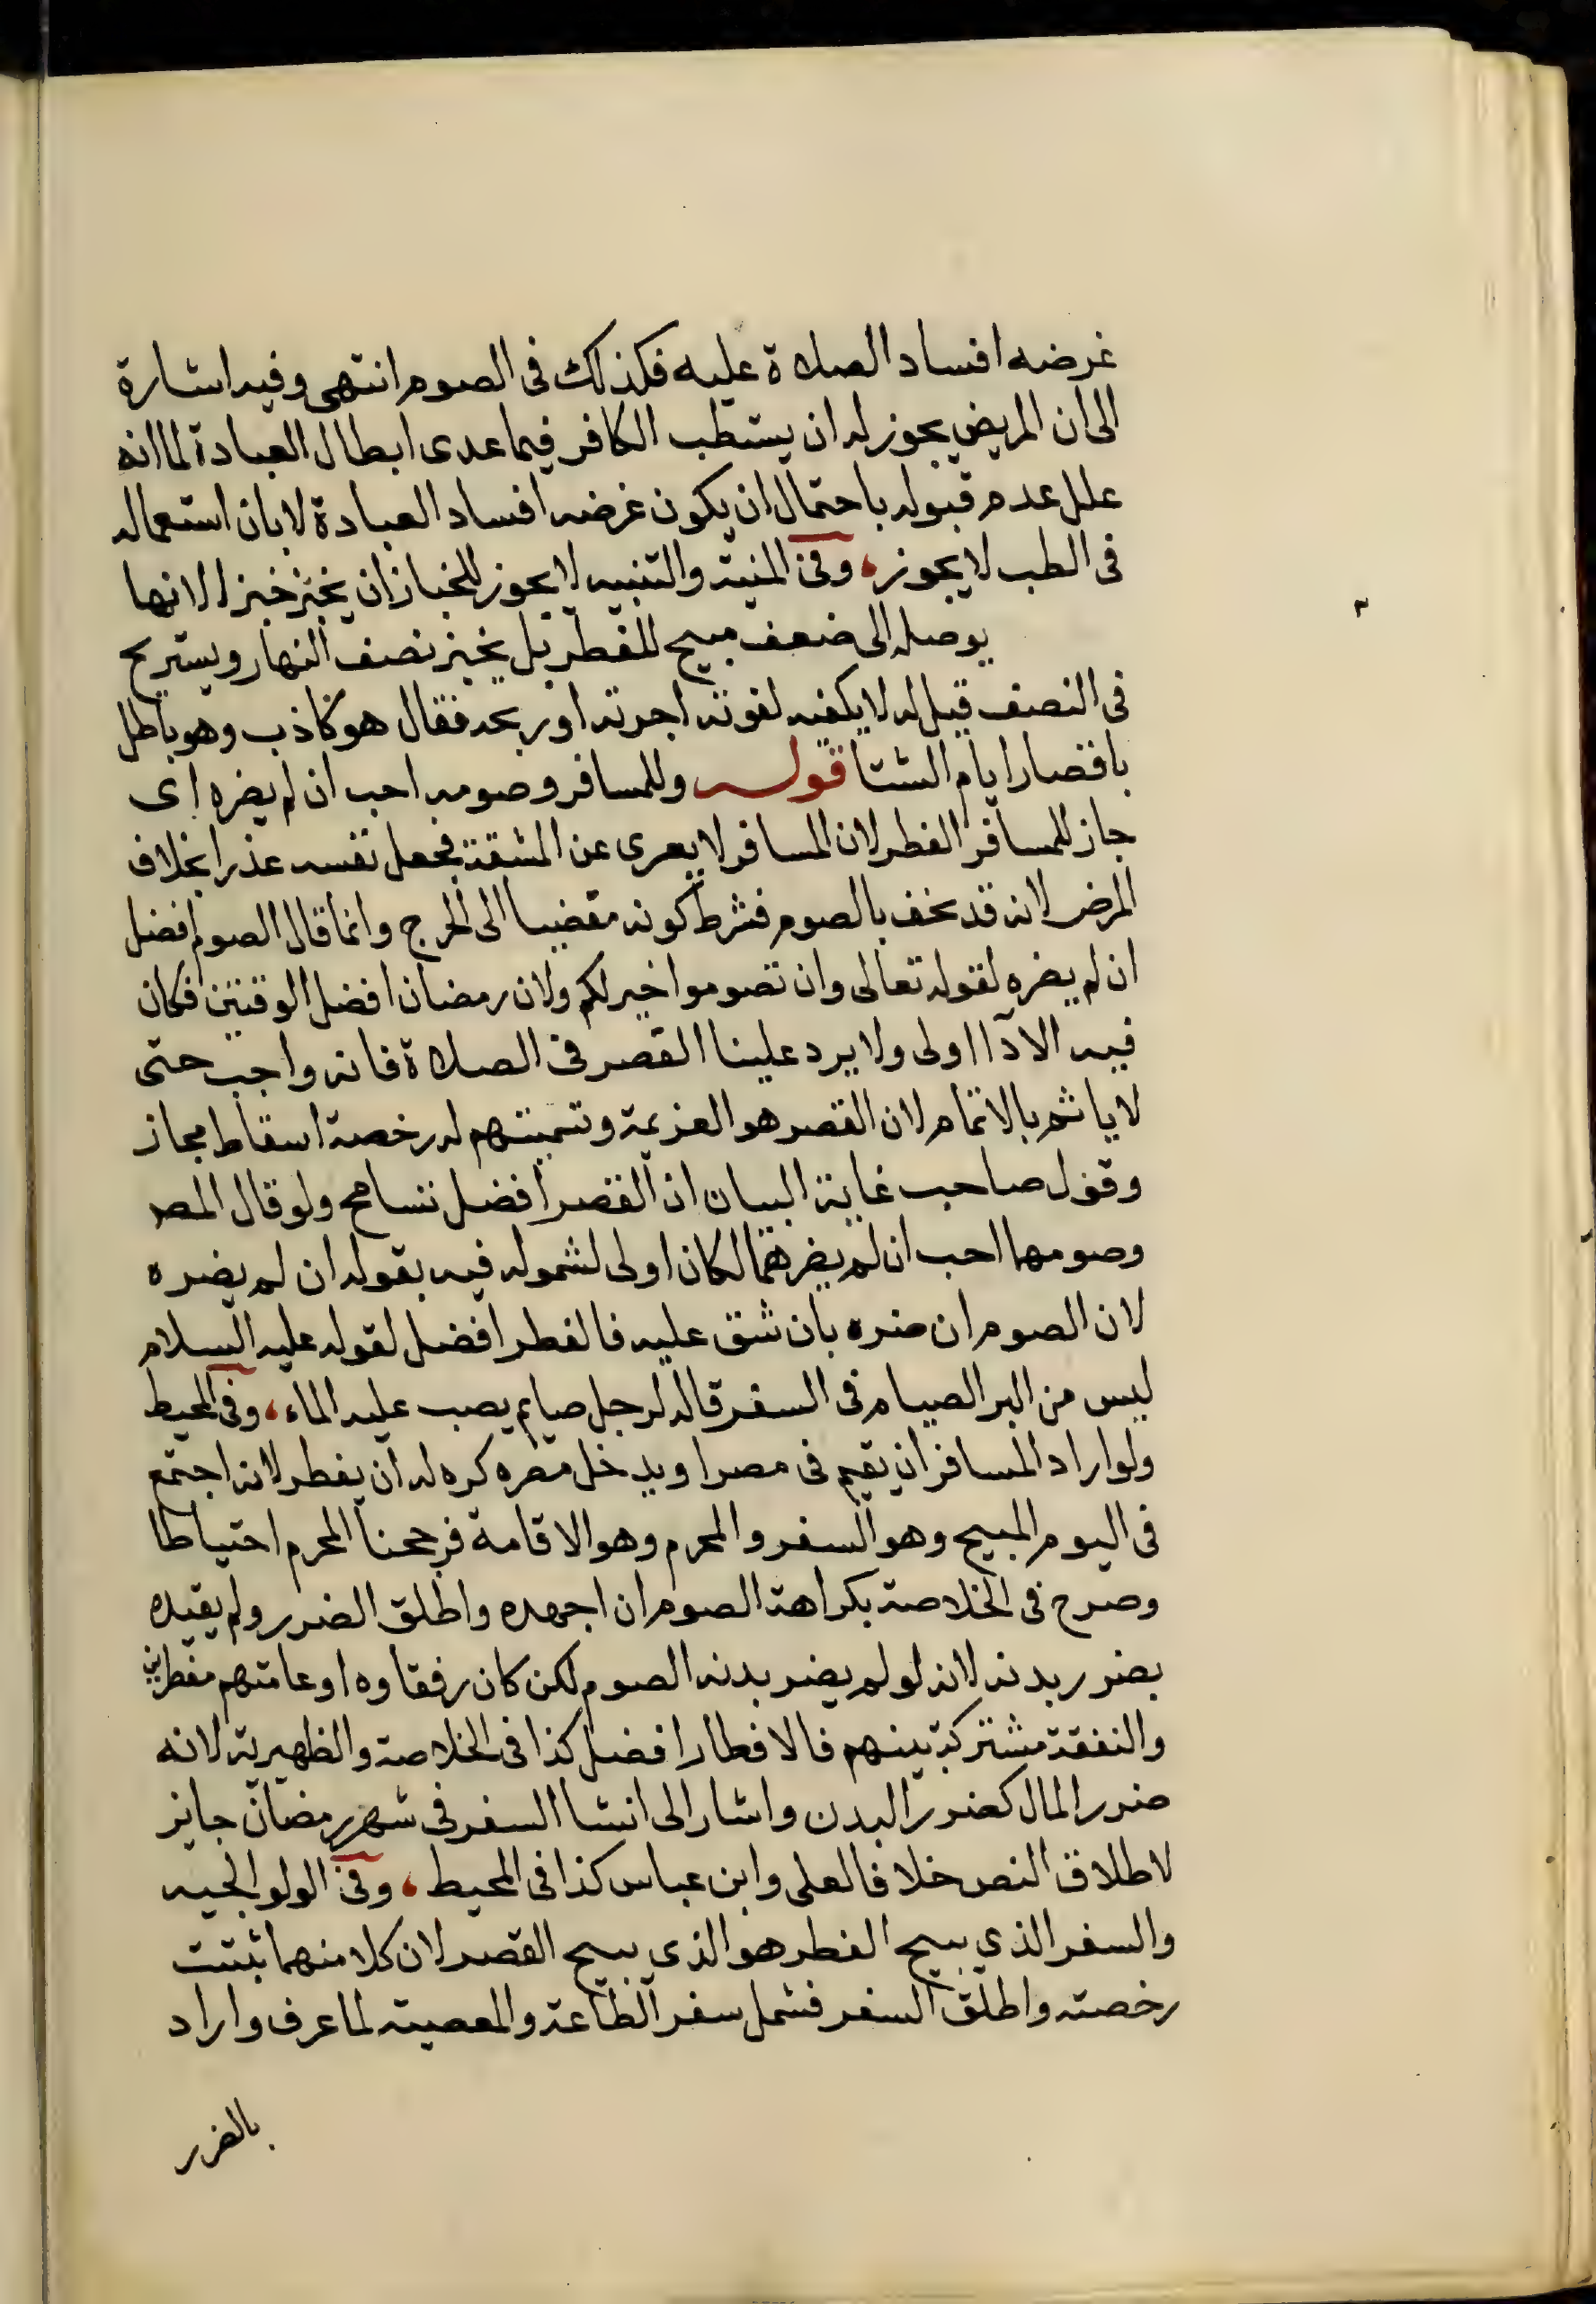 غرضه افساد الصلاة عليه فكذلك فى الصوم انتهى وفيه اشارة
الى ان المريض يجوز له ان يستطب الكافر فيما عدى ابطال العبادة لما انه
علل عدم قبوله باحتمال ان يكون غرضه افساد العبادة لا بان استعماله
فى الطب لا يجوز، وفى المنية والتنبيه لا يجوز للخباز ان يخبز خبزا لانها
يوصله الى ضعف مبيح للفطر بل يخبز نصف النهار ويستريح
فى النصف قيل له لا يكفيه لفوته اجرته او ربحه فقال هو كاذب وهو باطل
باقصار ايام الشتا قوله وللمسافر وصومه احب ان لم يضره اى
جاز للمسافر الفطر لان المسافر لا يعرى عن المشقة فجعل نفسه عذرا بخلاف
المرض لانه قد يخف بالصوم فشرط كونه مفضيا الى الحرج وانما قال الصوم افضل
ان لم يضره لقوله تعالى وان تصوموا خير لكم ولان رمضان افضل الوقتين فكان
فيه الادآ اولى ولا يرد علينا القصر فى الصلاة فانه واجب حتى
لا ياثم بالاتمام لان القصر هو العزيمة وتسميتهم له رخصة اسقاط مجاز
وقول صاحب غاية البيان ان القصر افضل تسامح ولو قال المص
وصومهما احب ان لم يضرهما لكان اولى لشموله قيد بقوله ان لم يضره
لان الصوم ان ضره بان شق عليه فالفطر افضل لقوله عليه السلام
ليس من البر الصيام فى السفر قاله لرجل صايم يصب عليه الماء، وفى المحيط
ولو اراد المسافر ان يقيم فى مصر او يدخل مصره كره له ان يفطر لانه اجتمع
فى اليوم المبيح وهو السفر والمحرم وهو الاقامة فرجحنا المحرم احتياطا
وصرح فى الخلاصة بكراهة الصوم ان اجهده واطلق الضرر ولم يقيده
بضرر بدنه لانه لو لم يضر بدنه الصوم لكن كان رفقاوه او عامتهم مفطرين
والنفقة مشتركة بينهم فالافطار افضل كذا فى الخلاصة والظهيرية لانه
ضرر المال كضرر البدن واشار الى انشا السفر فى شهر رمضان جايز
لاطلاق النص خلافا لعلى وابن عباس كذا فى المحيط، وفى الولوالجيه
والسفر الذي يبيح الفطر هو الذي يبيح القصر لان كلا منهما ثبتت
رخصته واطلق السفر فشمل سفر الطاعة والمعصية لما عرف واراد
بالضرر